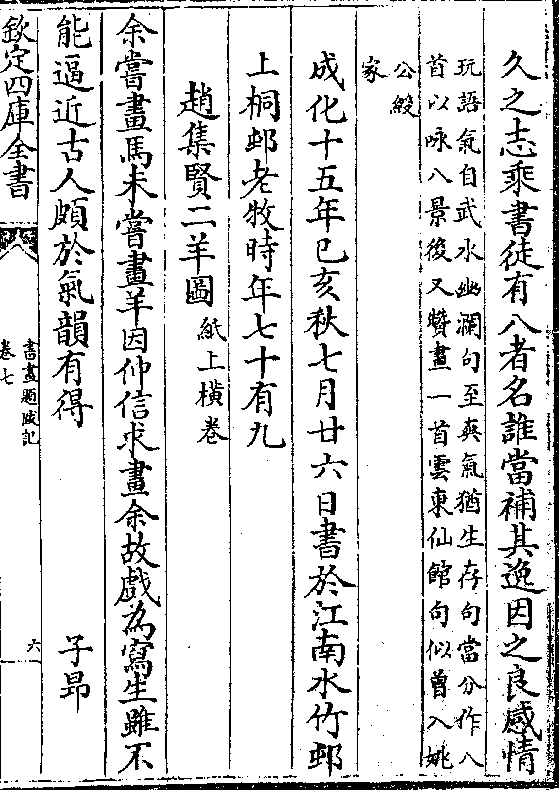 久之志乘書徒有八者名誰當補其逸因之良感情
玩語氣自武水幽瀾句至爽氣猶生存句當分作八
首以咏八景後又贊畫一首雲東仙館句似曾入姚
公綬
家
成化十五年己亥秋七月廿六日書於江南水竹邨
上桐邨老牧時年七十有九
趙集賢二羊圖紙上橫卷
余嘗畫馬未嘗畫羊因仲信求畫余故戲為寫生雖不
能逼近古人頗於氣韻有得 子昻
欽定四庫全書
書畫題跋記
卷七
六